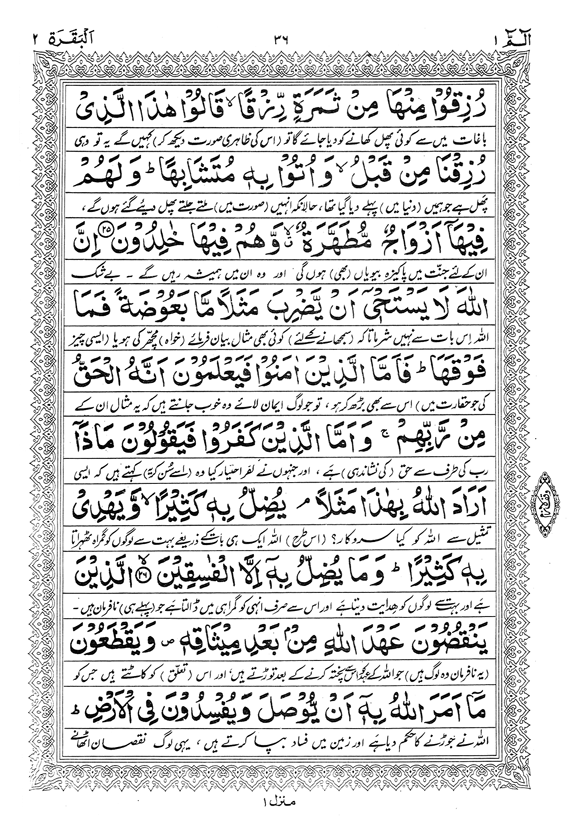 الٓمّٓ ١ ٣٦ اَلْبَقَرَة ٢
رُزِقُوْا مِنْهَا مِنْ ثَمَرَةٍ رِّزْقًا ۙ قَالُوْا هٰذَا الَّذِیْ
باغات میں سے کوئی پھل کھانے کو دیا جائے گا تو (اس کی ظاہری صورت دیکھ کر) کہیں گے یہ تو وہی
رُزِقْنَا مِنْ قَبْلُ ۙ وَاُتُوْا بِهٖ مُتَشَابِهًا ؕ وَلَهُمْ
پھل ہے جو ہمیں (دنیا میں) پہلے دیا گیا تھا، حالانکہ انہیں (صورت میں) ملتے جلتے پھل دیئے گئے ہوں گے،
فِیْهَاۤ اَزْوَاجٌ مُّطَهَّرَةٌ ۙ وَّهُمْ فِیْهَا خٰلِدُوْنَ ﴿٢٥﴾ اِنَّ
ان کے لئے جنت میں پاکیزہ بیویاں (بھی) ہوں گی اور وہ ان میں ہمیشہ رہیں گے ۔ بے شک
اللّٰهَ لَا یَسْتَحْیٖۤ اَنْ یَّضْرِبَ مَثَلًا مَّا بَعُوْضَةً فَمَا
اللہ اس بات سے نہیں شرماتا کہ (سمجھانے کے لئے) کوئی بھی مثال بیان فرمائے (خواہ) مچھر کی ہو یا (ایسی چیز
فَوْقَهَا ؕ فَاَمَّا الَّذِیْنَ اٰمَنُوْا فَیَعْلَمُوْنَ اَنَّهُ الْحَقُّ
کی جو حقارت میں) اس سے بھی بڑھ کر ہو، تو جو لوگ ایمان لائے وہ خوب جانتے ہیں کہ یہ مثال ان کے
مِنْ رَّبِّهِمْ ۚ وَاَمَّا الَّذِیْنَ كَفَرُوْا فَیَقُوْلُوْنَ مَاذَاۤ
رب کی طرف سے حق (کی نشاندہی) ہے، اور جنہوں نے کفر اختیار کیا وہ (اسے سن کر) کہتے ہیں کہ ایسی
اَرَادَ اللّٰهُ بِهٰذَا مَثَلًا ۘ یُضِلُّ بِهٖ كَثِیْرًا ۙ وَّیَهْدِیْ
تمثیل سے اللہ کو کیا سروکار؟ (اس طرح) اللہ ایک ہی بات کے ذریعے بہت سے لوگوں کو گمراہ ٹھہراتا
بِهٖ كَثِیْرًا ؕ وَمَا یُضِلُّ بِهٖۤ اِلَّا الْفٰسِقِیْنَ ﴿٢٦﴾ الَّذِیْنَ
ہے اور بہت سے لوگوں کو ہدایت دیتا ہے اور اس سے صرف انہی کو گمراہی میں ڈالتا ہے جو (پہلے ہی) نافرمان ہیں ۔
یَنْقُضُوْنَ عَهْدَ اللّٰهِ مِنْۢ بَعْدِ مِیْثَاقِهٖ ۪ وَیَقْطَعُوْنَ
(یہ نافرمان وہ لوگ ہیں) جو اللہ کے عہد کو اس سے پختہ کرنے کے بعد توڑتے ہیں، اور اس (تعلق) کو کاٹتے ہیں جس کو
مَاۤ اَمَرَ اللّٰهُ بِهٖۤ اَنْ یُّوْصَلَ وَیُفْسِدُوْنَ فِی الْاَرْضِ ؕ
اللہ نے جوڑنے کا حکم دیا ہے اور زمین میں فساد بپا کرتے ہیں، یہی لوگ نقصان اٹھانے
منزل ١